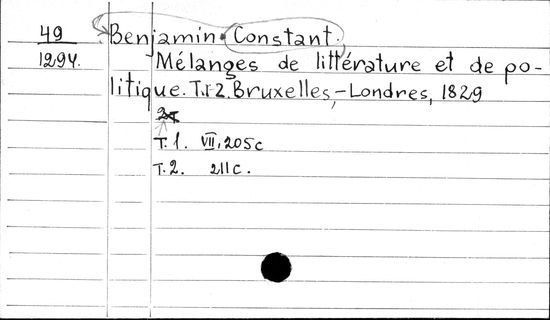 49
1294.
Benjamin Constant.
Mélanges de littérature et de po-
litique. T. 1-2. Bruxelles,-Londres, 1829
T. 1. VII, 205 c
T. 2. 211 c.